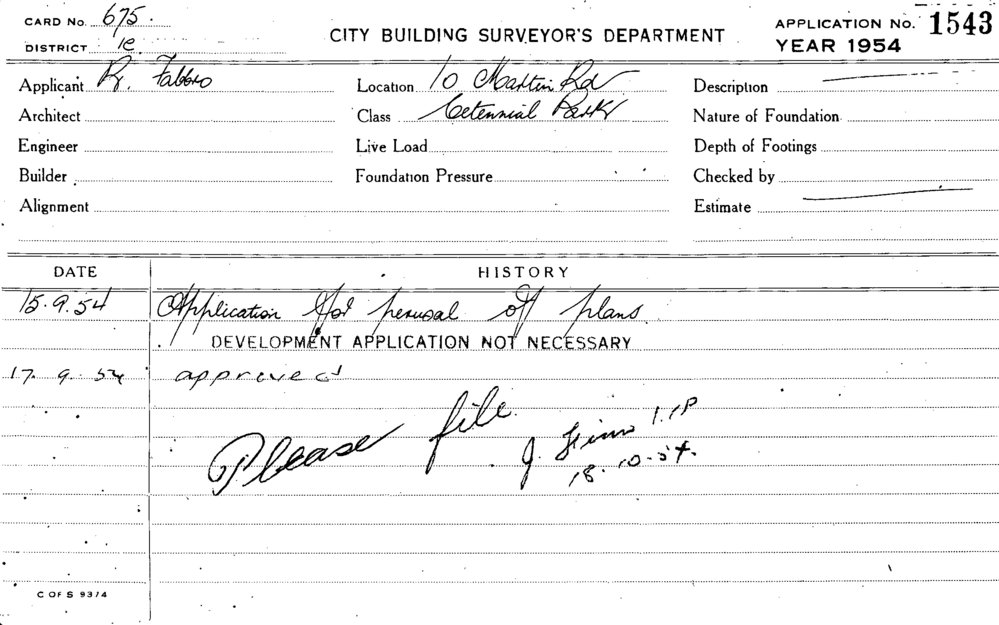 CARD No. 675.
DISTRICT 1e
CITY BUILDING SURVEYOR'S DEPARTMENT
APPLICATION No. 1543
YEAR 1954
Applicant R. Fabbro
Location 10 Martin Rd
Description
Architect
Class Cetennial Park
Nature of Foundation
Engineer
Live Load
Depth of Footings
Builder
Foundation Pressure
Checked by
Alignment
Estimate
DATE HISTORY
15.9.54 Application for perusal of plans
DEVELOPMENT APPLICATION NOT NECESSARY
17.9.54 approved
Please file
J.
18.10.54.
C OF S 93/4